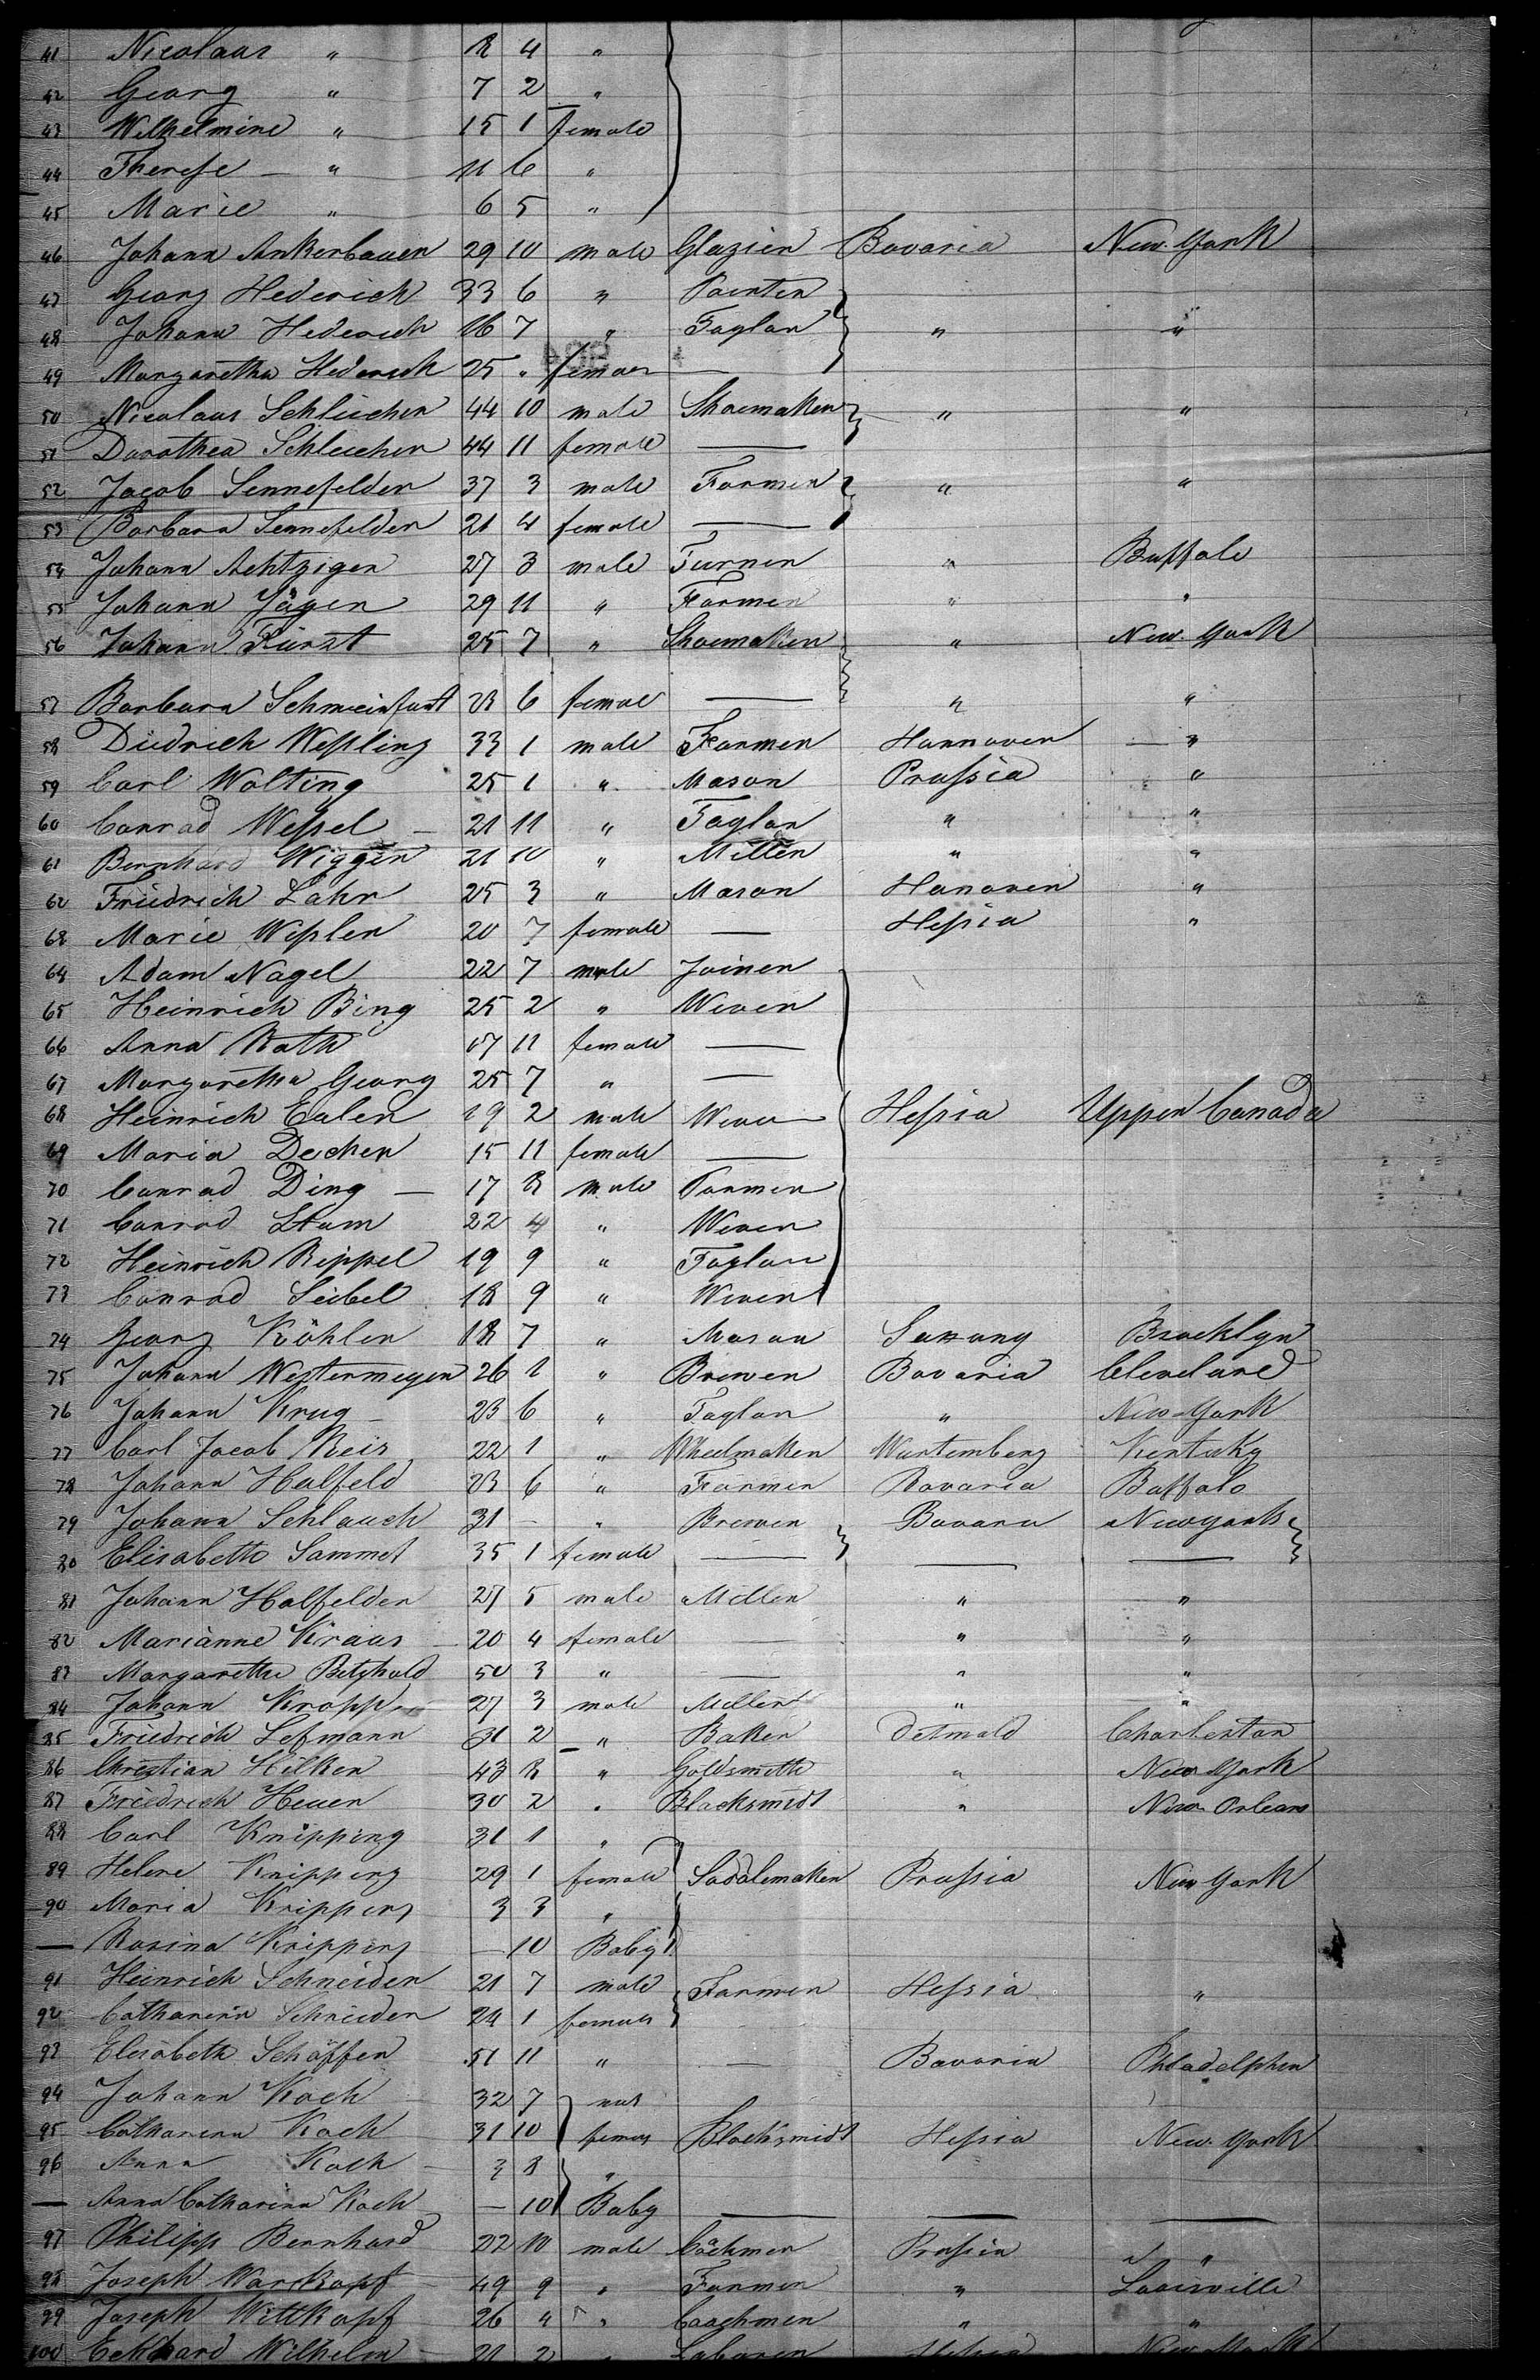 41 Nicolaus " 8 4 "
42 Georg " 7 2 "
43 Wilhelmine " 15 1 female
44 Therese — " 11 6 "
45 Marie " 6 5 "
46 Johann Ankerbauer 29 10 male Glazier Bavaria New-York
47 Georg Hederich 33 6 " Painter
48 Johann Hederich 16 7 " Taylor " "
49 Margaretha Hederich 25 " female —
50 Nicolaus Schleicher 44 10 male Shoemaker " "
51 Dorothea Schleicher 44 11 female —
52 Jacob Sennefelder 37 3 male Farmer " "
53 Barbara Sennefelder 21 4 female —
54 Johann Achtziger 27 3 male Turner " Buffalo
55 Johann Jäger 29 11 " Farmer " "
56 Johann Fürst 25 7 " Shoemaker " New-York
57 Barbara Schweinfurt 28 6 female — " "
58 Diedrich Wessling 33 1 male Farmer Hannover — "
59 Carl Wolting 25 1 " Mason Prussia "
60 Conrad Wessel — 21 11 " Taylor " "
61 Bernhard Wigger 21 10 " Miller " "
62 Friedrich Lahr 25 3 " Mason Hanover "
63 Marie Wissler 20 7 female — Hessia "
64 Adam Nagel 22 7 male Joiner
65 Heinrich Bing 25 2 " Wever
66 Anna Roth 17 11 female —
67 Margaretha Georg 25 7 " —
68 Heinrich Euler 19 2 male Wever Hessia Upper Canada
69 Maria Decher 15 11 female —
70 Conrad Ding — 17 8 male Farmer
71 Conrad Stum 22 4 " Wever
72 Heinrich Rippel 19 9 " Taylor
73 Conrad Seibel 18 9 " Wever
74 Georg Köhler 18 7 " Mason Saxony Brocklyn
75 Johann Westermeyer 26 1 " Brewer Bavaria Cleveland
76 Johann Krug — 23 6 " Taylor " New-York
77 Carl Jacob Reis 22 1 " Wheelmaker Wurtemberg Kentuky
78 Johann Halfeld 23 6 " Farmer Bavaria Buffalo
79 Johann Schlauch 31 — " Brewer Bavaria Newyork
80 Elisabetta Sammet 35 1 female — — —
81 Johann Halfelder 27 5 male Miller " "
82 Marianne Kraus 20 4 female — " "
83 Margaretha Betzhold 50 3 " — " "
84 Johann Kropp 27 3 male Miller " "
85 Friedrich Lefmann 31 2 " Baker Detmold Charlestan
86 Christian Hilker 43 8 " Goldsmith " New York
87 Friedrich Heuer 30 2 " Blacksmidt " New-Orleans
88 Carl Knipping 31 1 "
89 Helene Knipping 29 1 female Sadalemaker Prussia New York
90 Maria Knipping 3 3 "
— Rosina Knipping — 10 Baby
91 Heinrich Schneider 21 7 male Farmer Hessia "
92 Catharina Schneider 24 1 female
93 Elisabeth Schäffer 51 11 " — Bavaria Philadelphia
94 Johann Koch 32 7
95 Catharina Koch 31 10 Blacksmidt Hessia New-York
96 Anna Koch 3 8 "
— Anna Catharina Koch — 10 Baby — — —
97 Philipp Bernhard 22 10 male Coachmen Prussia "
98 Joseph Warkopf 49 9 " Farmer " Louisville
99 Joseph Wittkopf 26 4 " Coachmen " "
100 Eckhard Wilhelm 21 2 " Laborer Hessia New-York